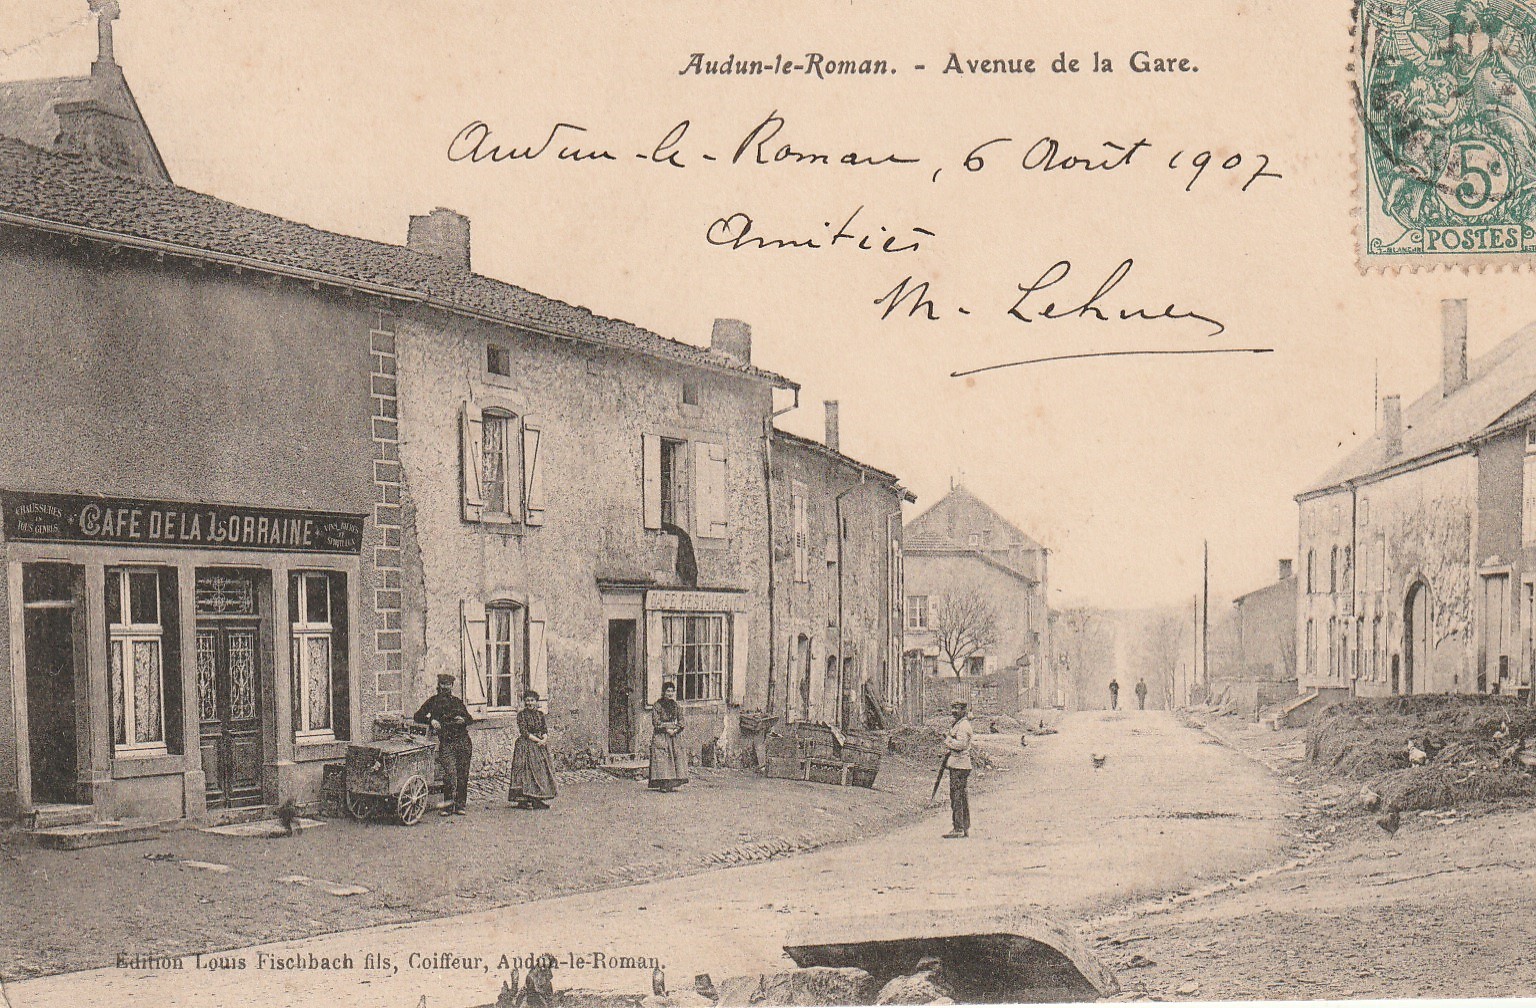 Audun-le-Roman. - Avenue de la Gare.
Audun-le-Roman, 6 Août 1907
Amitiés
5c
POSTES
CHAUSSURES
EN
TOUS GENRES
CAFE DE LA LORRAINE
VINS, BIÈRES
ET
SPIRITUEUX
Edition Louis Fischbach fils, Coiffeur, Audun-le-Roman.